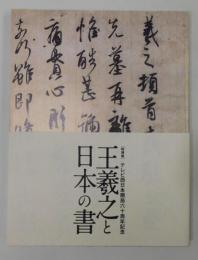 羲之頓首
先墓再離
惟酷甚
痛貫心
奈雖即
特別展 テレビ西日本開局六十周年記念
王羲之と
日本の書